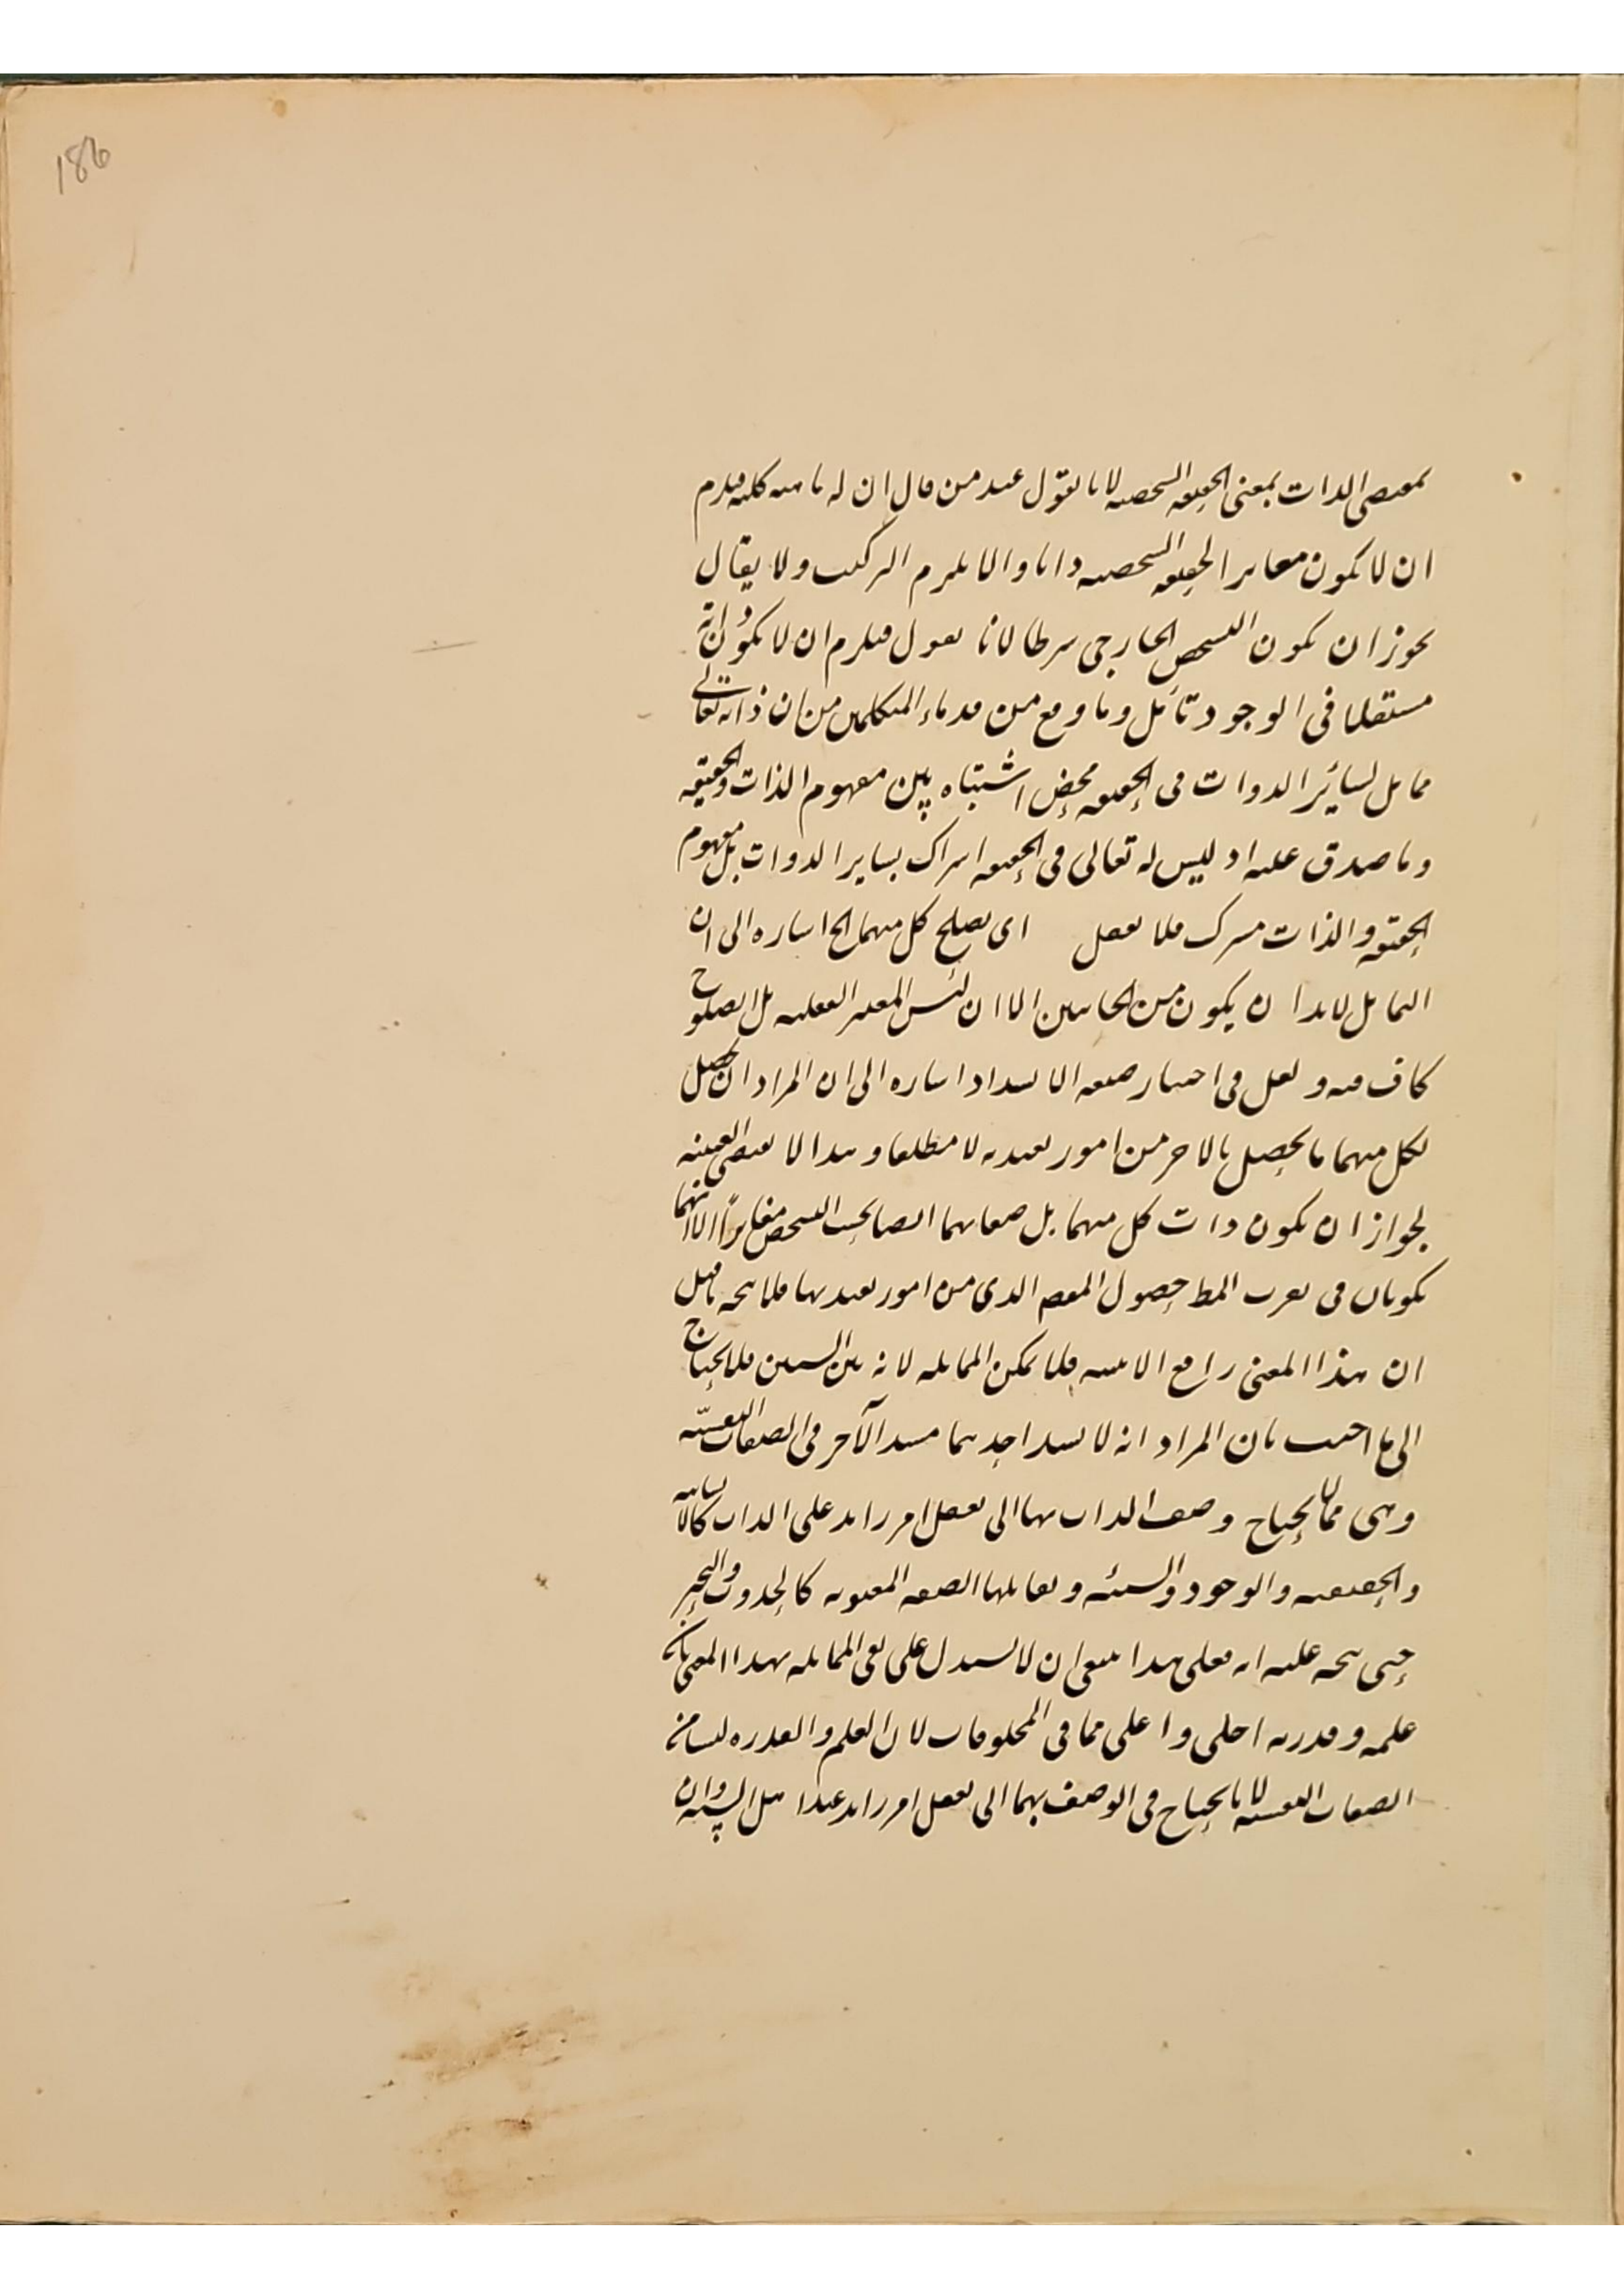 186
بمقتضى الذات بمعنى الحقيقه الشخصيه لانا نقول عند من قال ان له ماهيه كليه فيلزم
ان لا يكون مغايرا لحقيقه الشخصيه ذاتا والا يلزم التركيب ولا يقال
يجوز ان يكون التشخص الخارجى شرطا لانا نقول فيلزم ان لا يكون ذاته
مستقلا فى الوجود تأمل وما وقع من قدماء المتكلمين من ان ذاته تعالى
مماثل لسائر الذوات فى الحقيقه محض اشتباه بين مفهوم الذات والحقيقه
وما صدق عليه اذ ليس له تعالى فى الحقيقه اشتراك بساير الذوات بل مفهوم
الحقيقه والذات مشترك فلا تغفل اى يصلح كل منهما الخ اشاره الى ان
التماثل لابد ان يكون من الجانبين الا ان ليس المعتبر الفعليه بل الصلوح
كاف فيه ولعل فى اختيار صيغه الانسداد اشاره الى ان المراد ان يحصل
لكل منهما ما يحصل بالاخر من امور لا مطلقا وهذا لا يقتضى العينيه
لجواز ان يكون ذات كل منهما بل صفاتهما ايضا بحسب التشخص مغايرا الا انهما
يكونان فى حصول الذى من امور فلا يتجه ما قيل
ان هذا المعنى رافع الاثنينيه فلا يمكن المماثله لانه بين الشيئين فلا يحتاج
الى ما اجيب بان المراد انه لا يسد احدهما مسد الآخر فى الصفات النفسيّه
وهى مما لا يحتاج وصف الذات بها الى تعقل امر زايد على الذات كالانسانيه
والحقيقيه والوجود والشيئيه ويقابلها الصفه المعنويه كالحدوث والتحيز
حتى يتجه عليه انه فعلى هذا ينبغى ان لا يستدل على نفى المماثله بهذا المعنى بان
علمه وقدرته اجلى واعلى مما فى المخلوقات لان العلم والقدره ليسا من
الصفات النفسيه لانا نحتاج فى الوصف بهما الى تعقل امر زايد عند اهل السنه وان